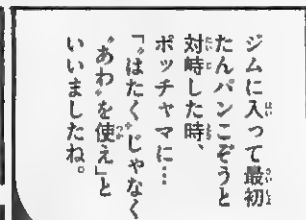 ジムに入って最初
たんパンこぞうと
対峙した時、
ポッチャマに…
「〝はたく〟じゃなく
〝あわ〟を使え」と
いいましたね。